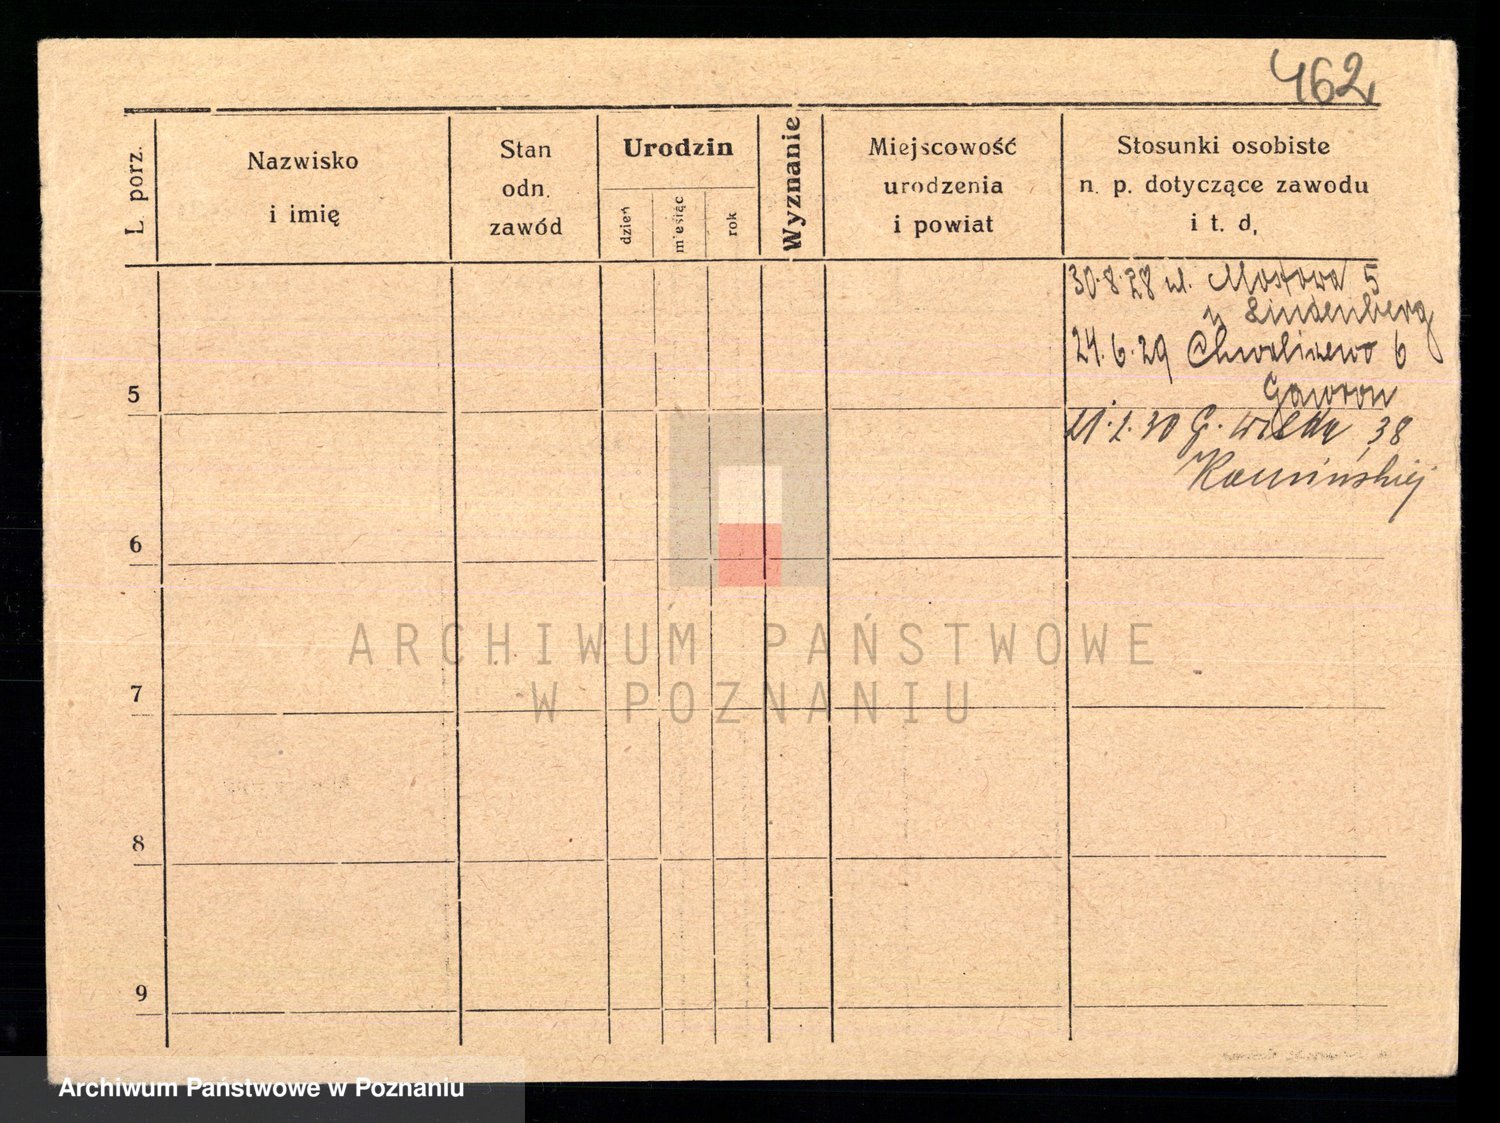 462
L. porz.
Nazwisko
i imię
Stan
odn.
zawód
Urodzin
dzień
miesiąc
rok
Wyznanie
Miejscowość
urodzenia
i powiat
Stosunki osobiste
n. p. dotyczące zawodu
i t. d.
30.8.28 ul. Mostowa 5
u Lindenberg
24.6.29 Chwaliszewo 6
Gawron
5
G. Wilda 38
Kamińskiej
6
7
8
9
ARCHIWUM PAŃSTWOWE
W POZNANIU
Archiwum Państwowe w Poznaniu